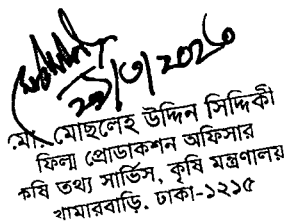 ২৯/৩/২০২০
মোঃ মোছলেহ উদ্দিন সিদ্দিকী
ফিল্ম প্রোডাকশন অফিসার
কৃষি তথ্য সার্ভিস, কৃষি মন্ত্রণালয়
খামারবাড়ি, ঢাকা-১২১৫